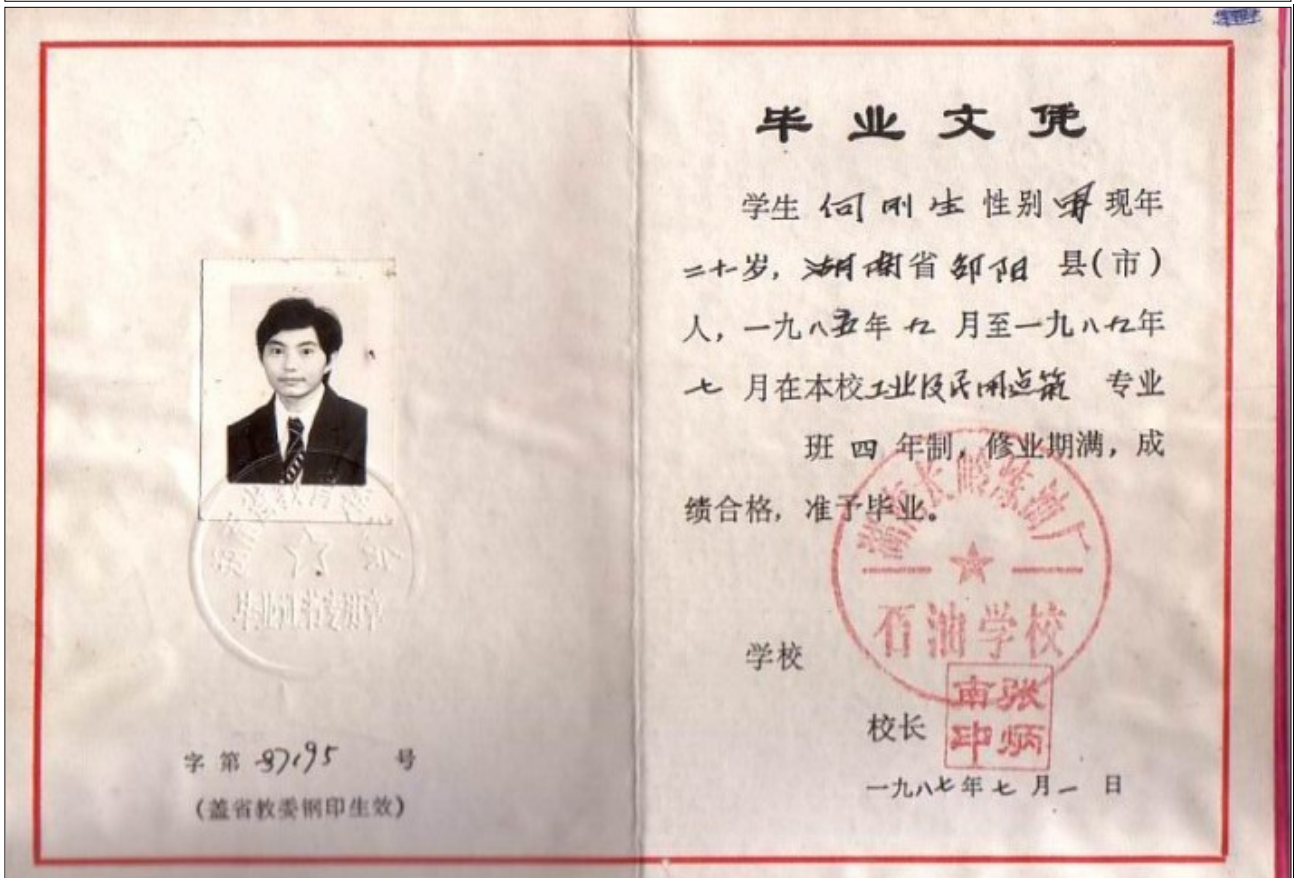 字第 87195 号
(盖省教委钢印生效)
毕业证书专用章
毕业文凭
学生 何刚生 性别 男 现年
二十岁，湖南省邵阳 县(市)
人，一九八五年九月至一九八九年
七月在本校工业及民用建筑 专业
班四年制，修业期满，成
绩合格，准予毕业。
湖南长岭炼油厂
石油学校
学校
校长
张炳南印
一九八七年七月一日